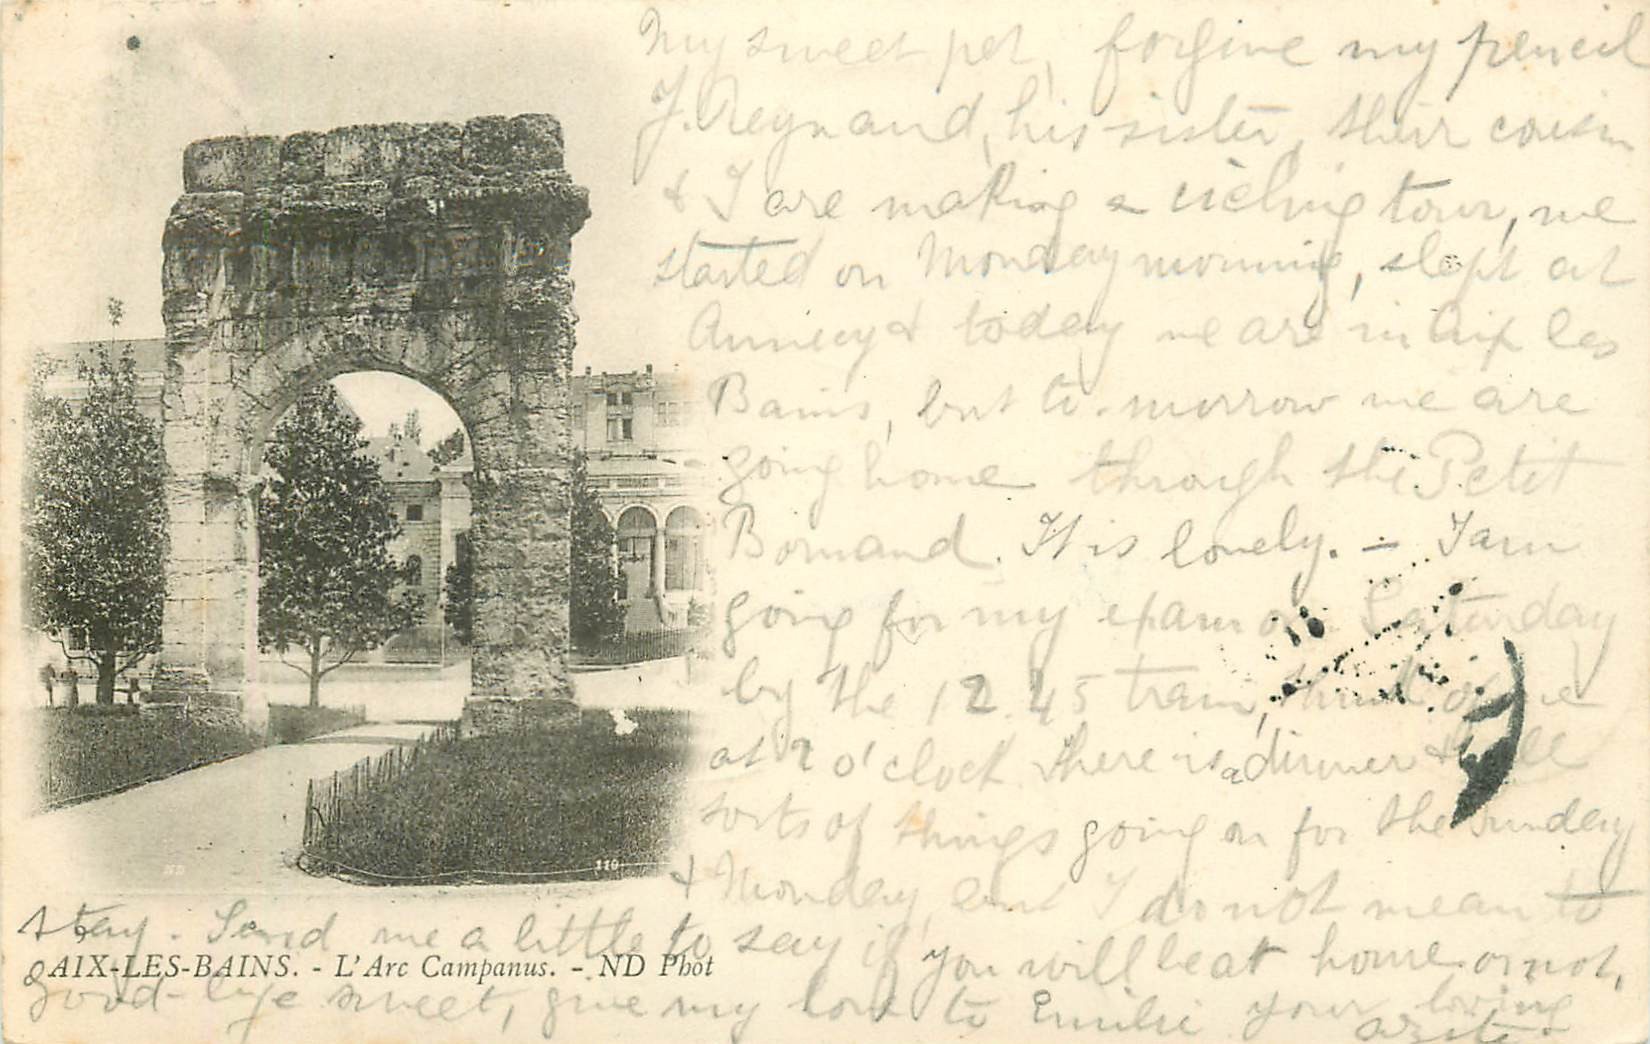 My sweet pet, forgive my pencil
J. Reynaud, his sister, their cousin
& I are making a cicling tour, we
started on Monday morning, slept at
Annecy & today we are in Aix les
Bains, but to-morrow we are
going home through the Petit
Bornand. It is lovely. – I am
going for my exam on Saturday
by the 12.45 train, think of me
at 2 o'clock there is a dinner & all
sorts of things going on for the Sunday
& Monday, but I do not mean to
stay. Send me a little to say if you will be at home or not,
AIX-LES-BAINS. - L'Arc Campanus. - ND Phot
good-bye sweet, give my love to Emilie your loving
ND
119